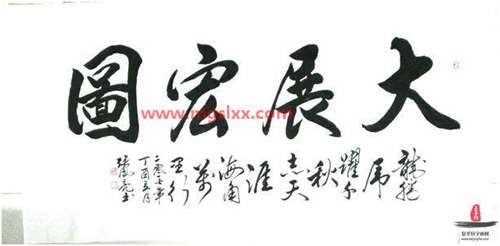 大展宏圖
龍騰
虎
躍千
秋
志天
涯
海角
萬
里行
二零一七年
丁酉五月
www.migslxx.com